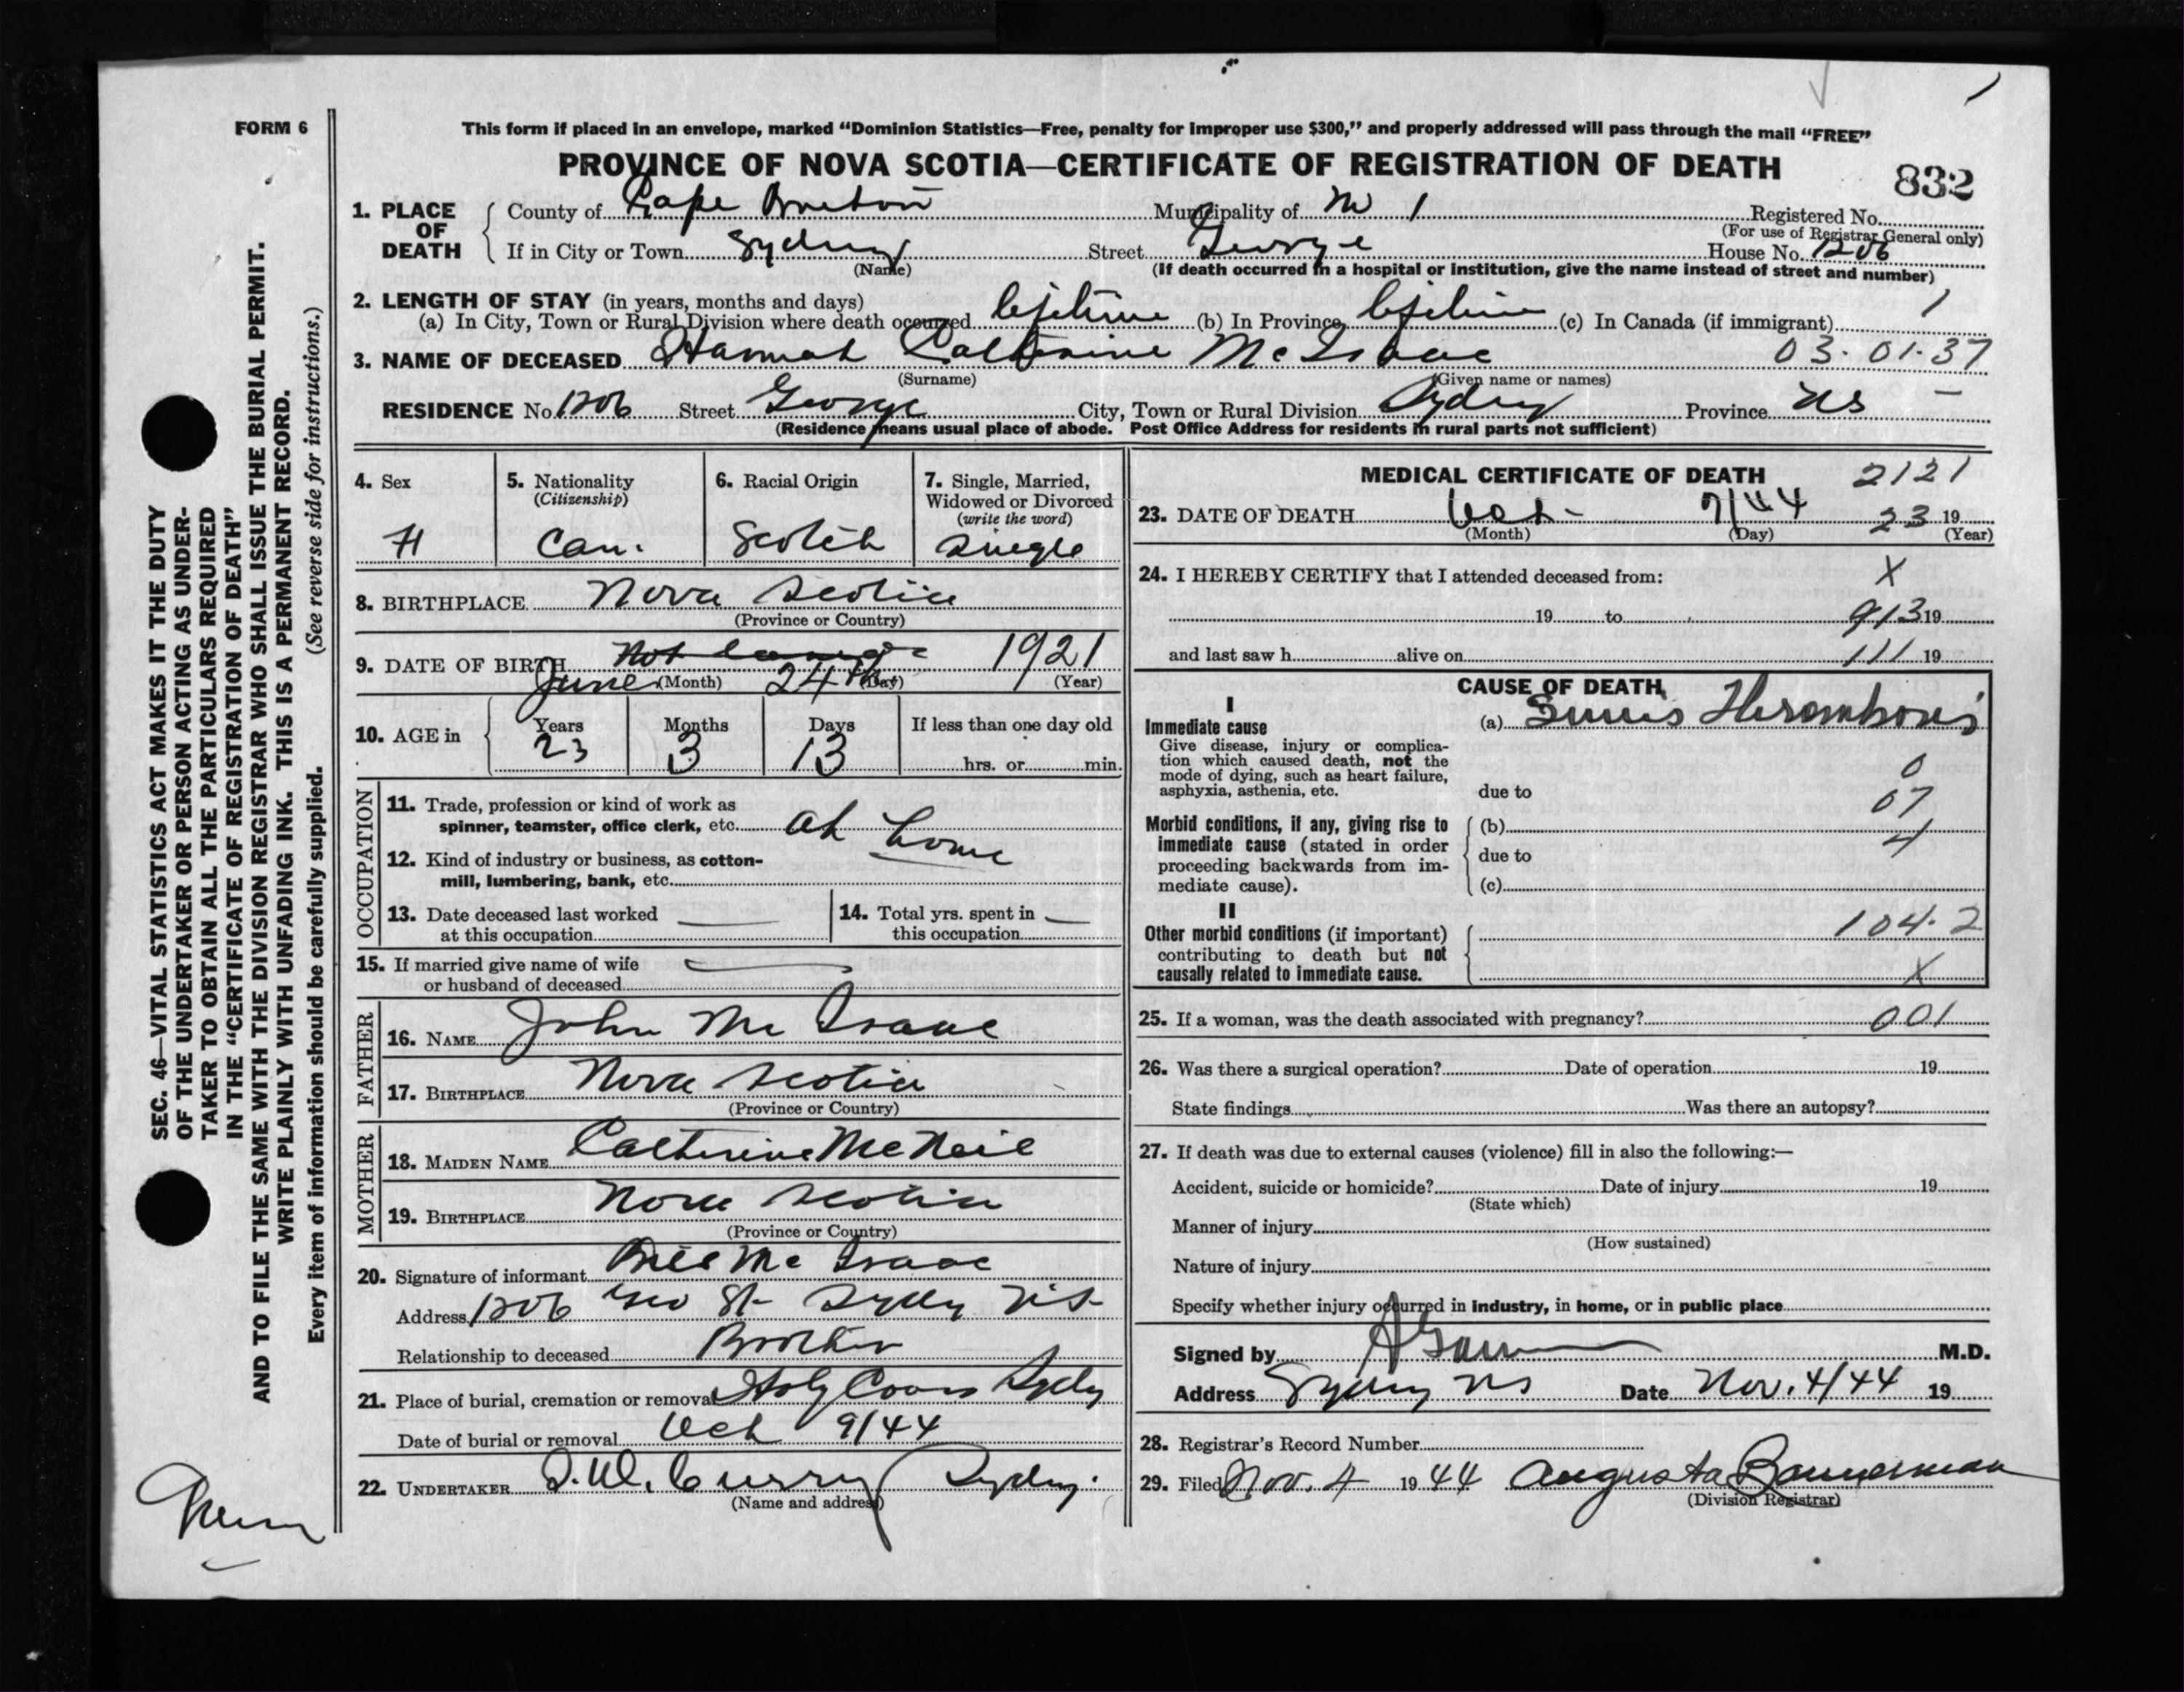 FORM 6
This form if placed in an envelope, marked “Dominion Statistics—Free, penalty for improper use $300,” and properly addressed will pass through the mail “FREE”
PROVINCE OF NOVA SCOTIA—CERTIFICATE OF REGISTRATION OF DEATH
832
1. PLACE OF DEATH { County of Cape Breton Municipality of M 1 Registered No.
(For use of Registrar General only)
If in City or Town Sydney Street George House No. 1206
(Name) (If death occurred in a hospital or institution, give the name instead of street and number)
2. LENGTH OF STAY (in years, months and days) 1
(a) In City, Town or Rural Division where death occurred lifetime (b) In Province lifetime (c) In Canada (if immigrant)
3. NAME OF DECEASED Hannah Catherine McIsaac 03.01.37
(Surname) (Given name or names)
RESIDENCE No. 1206 Street George City, Town or Rural Division Sydney Province NS —
(Residence means usual place of abode. Post Office Address for residents in rural parts not sufficient)
4. Sex
5. Nationality (Citizenship) Can.
6. Racial Origin Scotch
7. Single, Married, Widowed or Divorced (write the word) Single
8. BIRTHPLACE Nova Scotia
(Province or Country)
9. DATE OF BIRTH June 24th 1921
(Month) (Day) (Year)
10. AGE in { Years 23 Months 3 Days 13 If less than one day old
hrs. or min.
OCCUPATION
11. Trade, profession or kind of work as
spinner, teamster, office clerk, etc. at home
12. Kind of industry or business, as cotton-
mill, lumbering, bank, etc.
13. Date deceased last worked —
at this occupation
14. Total yrs. spent in —
this occupation
15. If married give name of wife —
or husband of deceased
FATHER
16. NAME John McIsaac
17. BIRTHPLACE Nova Scotia
(Province or Country)
MOTHER
18. MAIDEN NAME Catherine McNeil
19. BIRTHPLACE Nova Scotia
(Province or Country)
20. Signature of informant McIsaac
Address 1206 Geo St Sydney N.S.
Relationship to deceased Brother
21. Place of burial, cremation or removal Holy Cross Sydney
Date of burial or removal Oct 9/44
22. UNDERTAKER Curry Sydney.
(Name and address)
MEDICAL CERTIFICATE OF DEATH 2121
23. DATE OF DEATH Oct- 7/44 23 19
(Month) (Day) (Year)
24. I HEREBY CERTIFY that I attended deceased from: X
19 to 913 19
and last saw h alive on 111 19
CAUSE OF DEATH
I
Immediate cause (a) Sinus Thrombosis
Give disease, injury or complica-
tion which caused death, not the
mode of dying, such as heart failure, 0
asphyxia, asthenia, etc. due to 07
Morbid conditions, if any, giving rise to (b)
immediate cause (stated in order 4
proceeding backwards from im- due to
mediate cause). (c)
II
Other morbid conditions (if important) 104.2
contributing to death but not
causally related to immediate cause. X
25. If a woman, was the death associated with pregnancy? 001
26. Was there a surgical operation? Date of operation 19
State findings Was there an autopsy?
27. If death was due to external causes (violence) fill in also the following:—
Accident, suicide or homicide? Date of injury 19
(State which)
Manner of injury
(How sustained)
Nature of injury
Specify whether injury occurred in industry, in home, or in public place
Signed by M.D.
Address Sydney NS Date Nov. 4/44 19
28. Registrar's Record Number
29. Filed Nov. 4 1944 Augusta Bannerman
(Division Registrar)
SEC. 46—VITAL STATISTICS ACT MAKES IT THE DUTY
OF THE UNDERTAKER OR PERSON ACTING AS UNDER-
TAKER TO OBTAIN ALL THE PARTICULARS REQUIRED
IN THE “CERTIFICATE OF REGISTRATION OF DEATH”
AND TO FILE THE SAME WITH THE DIVISION REGISTRAR WHO SHALL ISSUE THE BURIAL PERMIT.
WRITE PLAINLY WITH UNFADING INK. THIS IS A PERMANENT RECORD.
Every item of information should be carefully supplied. (See reverse side for instructions.)